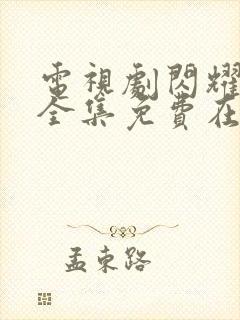 電視劇閃耀
全集免費在
孟東路